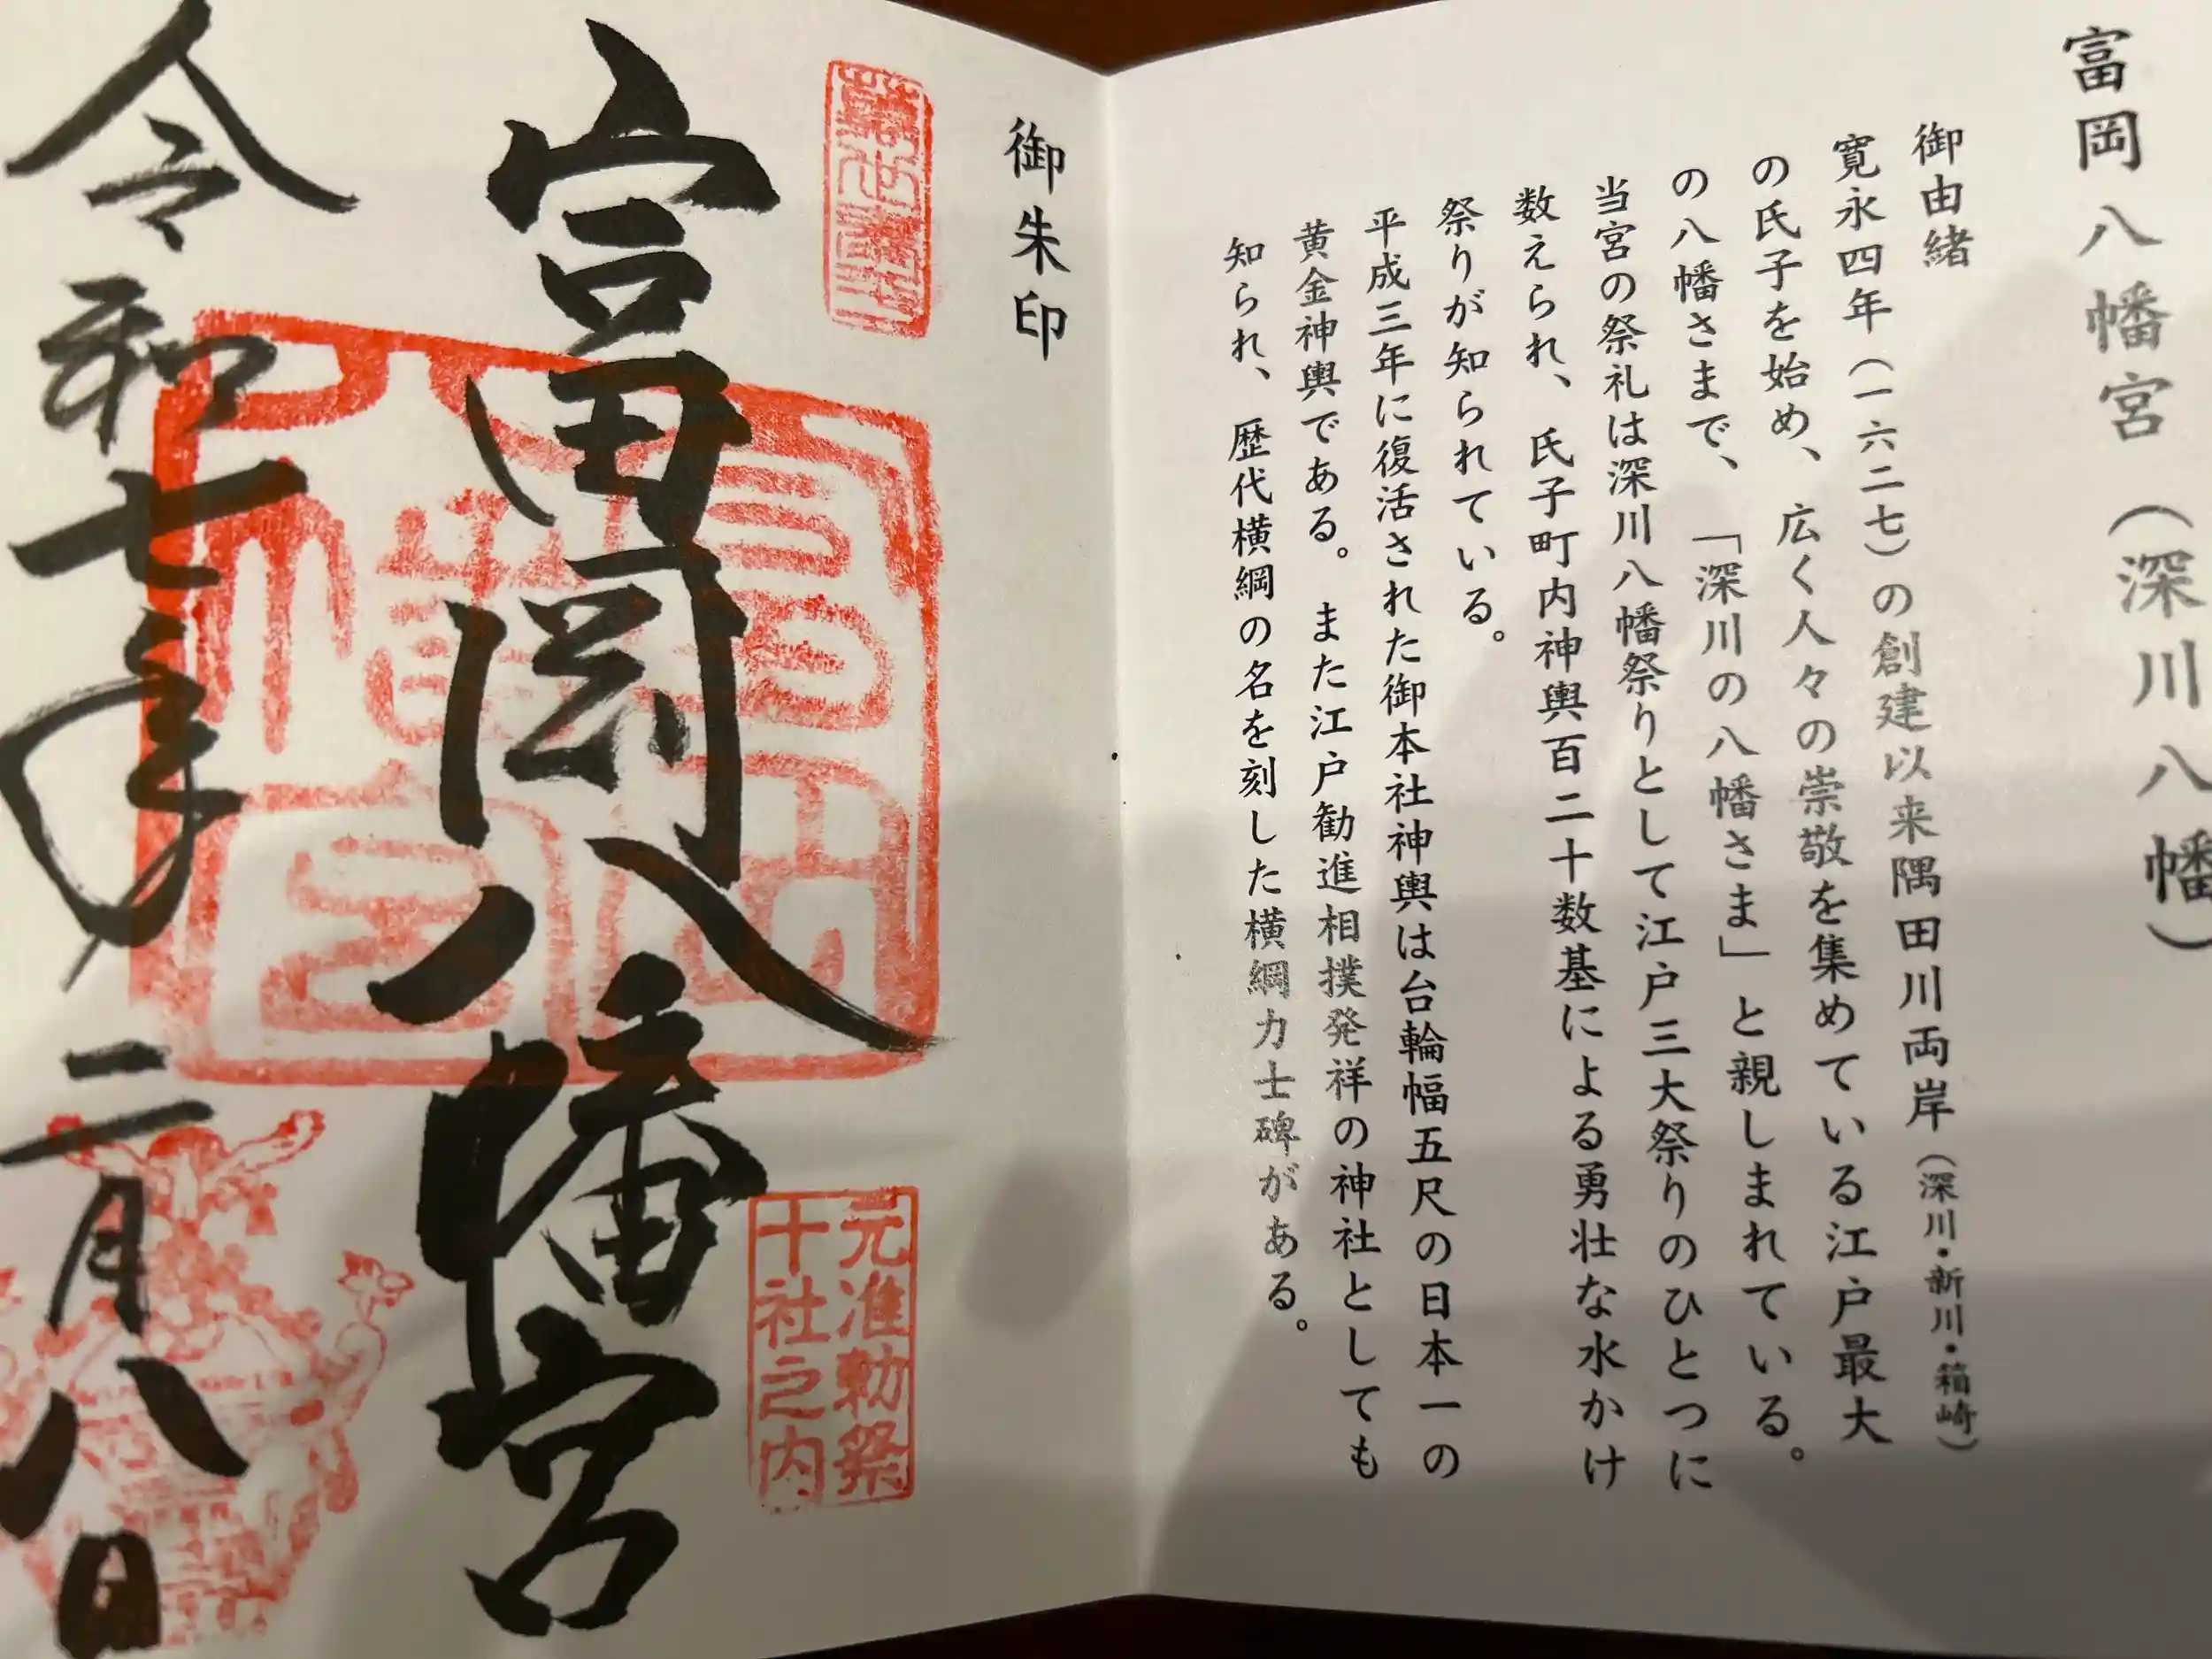 富岡八幡宮（深川八幡）
御由緒
寛永四年（一六二七）の創建以来隅田川両岸（深川・新川・箱崎）
の氏子を始め、広く人々の崇敬を集めている江戸最大
の八幡さまで、「深川の八幡さま」と親しまれている。
当宮の祭礼は深川八幡祭りとして江戸三大祭りのひとつに
数えられ、氏子町内神輿百二十数基による勇壮な水かけ
祭りが知られている。
平成三年に復活された御本社神輿は台輪幅五尺の日本一の
黄金神輿である。また江戸勧進相撲発祥の神社としても
知られ、歴代横綱の名を刻した横綱力士碑がある。
御朱印
元准勅祭
十社之内
富岡八幡宮
令和七年二月八日